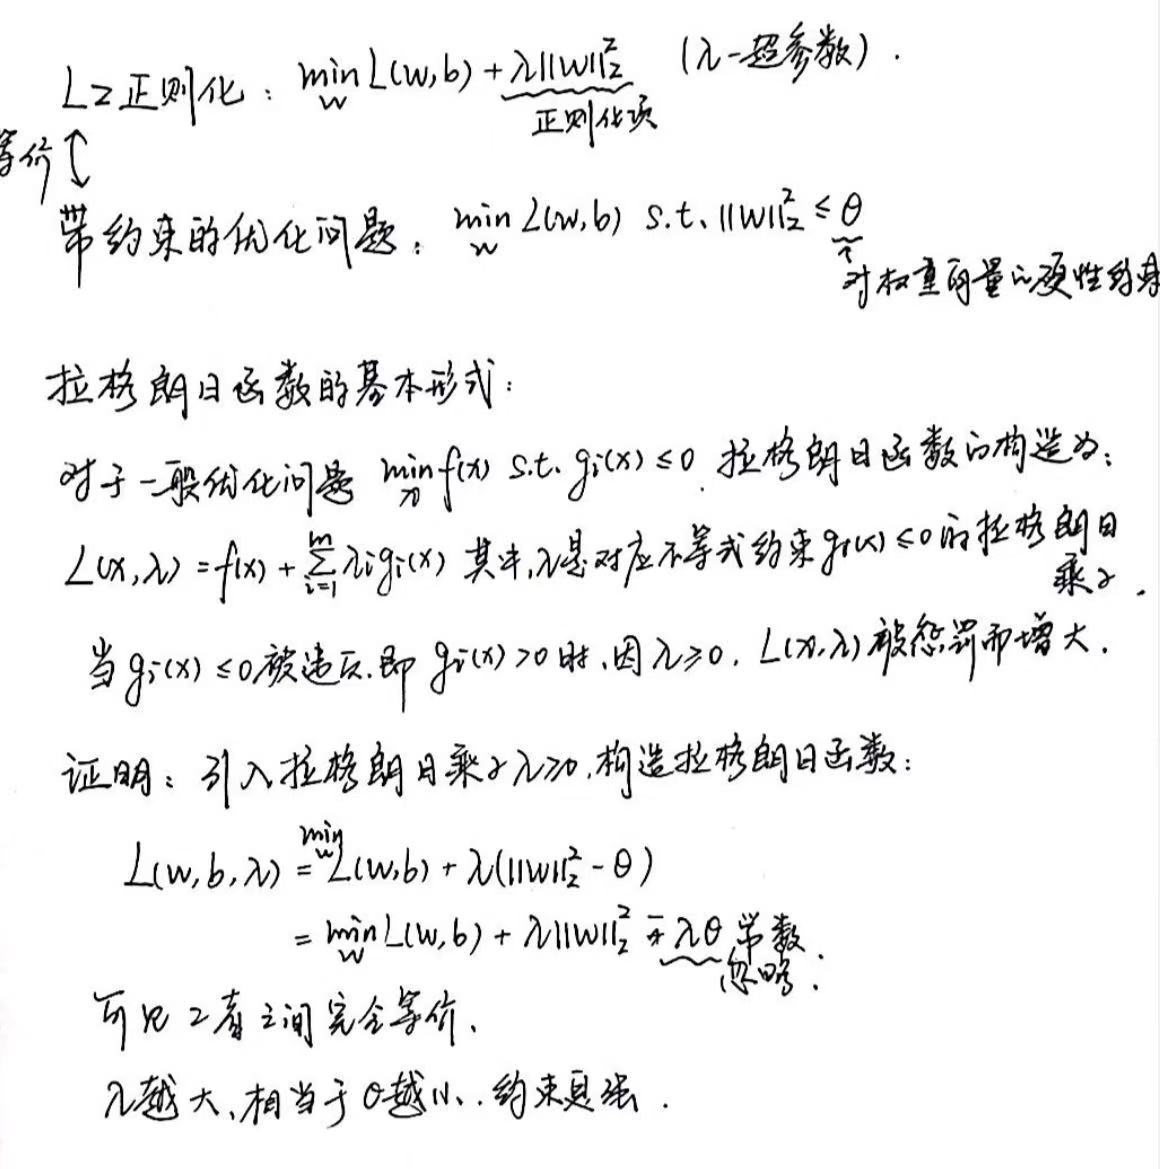 L2正则化: min_w L(w,b) + λ||w||₂² (λ-超参数).
正则化项
等价 ↕
带约束的优化问题: min_w L(w,b) s.t. ||w||₂² ≤ θ
对权重向量的硬性约束
拉格朗日函数的基本形式:
对于一般优化问题 min_x f(x) s.t. gᵢ(x) ≤ 0. 拉格朗日函数的构造为:
L(x,λ) = f(x) + Σ_{i=1}^{m} λᵢgᵢ(x) 其中,λ是对应不等式约束gᵢ(x) ≤ 0的拉格朗日
乘子.
当gᵢ(x) ≤ 0被违反.即 gᵢ(x) > 0 时,因λ≥0, L(x,λ)被惩罚而增大.
证明: 引入拉格朗日乘子λ≥0,构造拉格朗日函数:
L(w,b,λ) = min_w L(w,b) + λ(||w||₂² - θ)
= min_w L(w,b) + λ||w||₂² - λθ 常数.
忽略.
可见2者之间完全等价.
λ越大,相当于θ越小,约束更强.